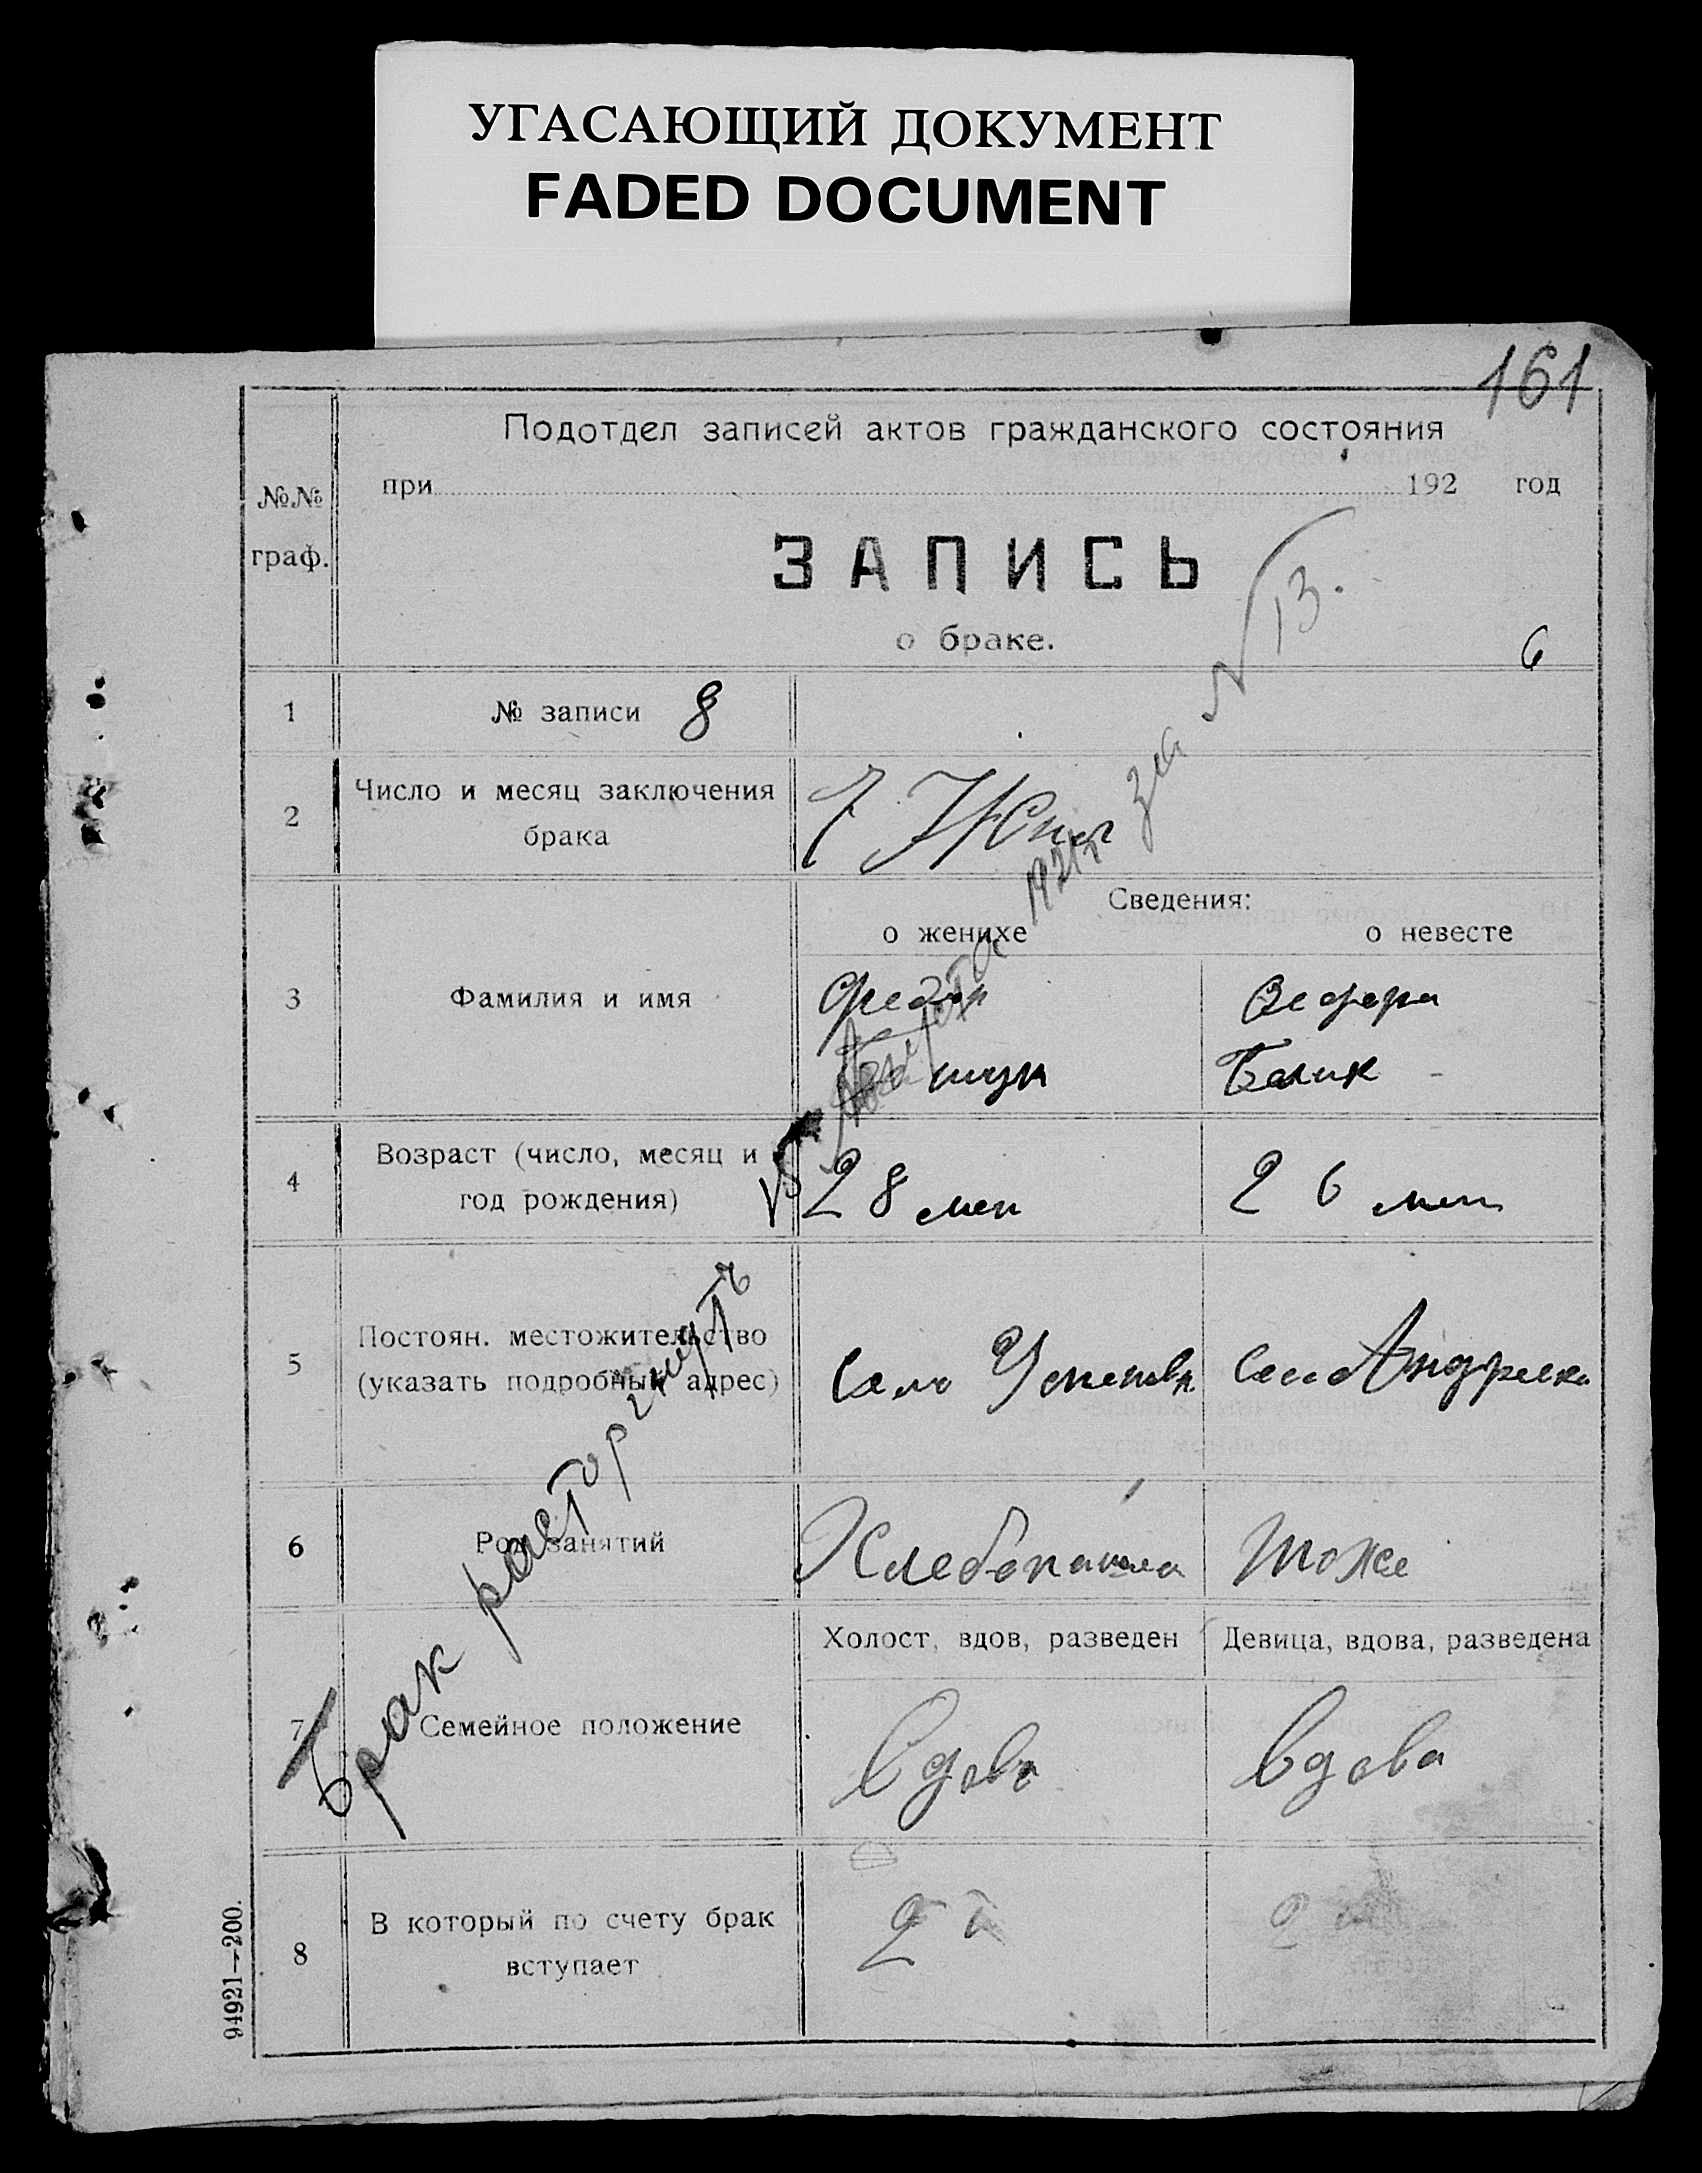 УГАСАЮЩИЙ ДОКУМЕНТ
FADED DOCUMENT
161
Подотдел записей актов гражданского состояния
№№
граф.
при 192 год
ЗАПИСЬ
о браке.
6
1 № записи 8
2 Число и месяц заключения
брака
7 Июня
Сведения:
о женихе о невесте
3 Фамилия и имя
Федор
Белик
4 Возраст (число, месяц и
год рождения)
28 лет 26 лет
5 Постоян. местожительство
(указать подробный адрес)
Село Село
6 Род занятий
Хлебопашец тоже
Холост, вдов, разведен Девица, вдова, разведена
7 Семейное положение
Вдов вдова
8 В который по счету брак
вступает
2й 2
Брак расторгнутъ 18 Августа 1921 г за № 13.
94921—200.